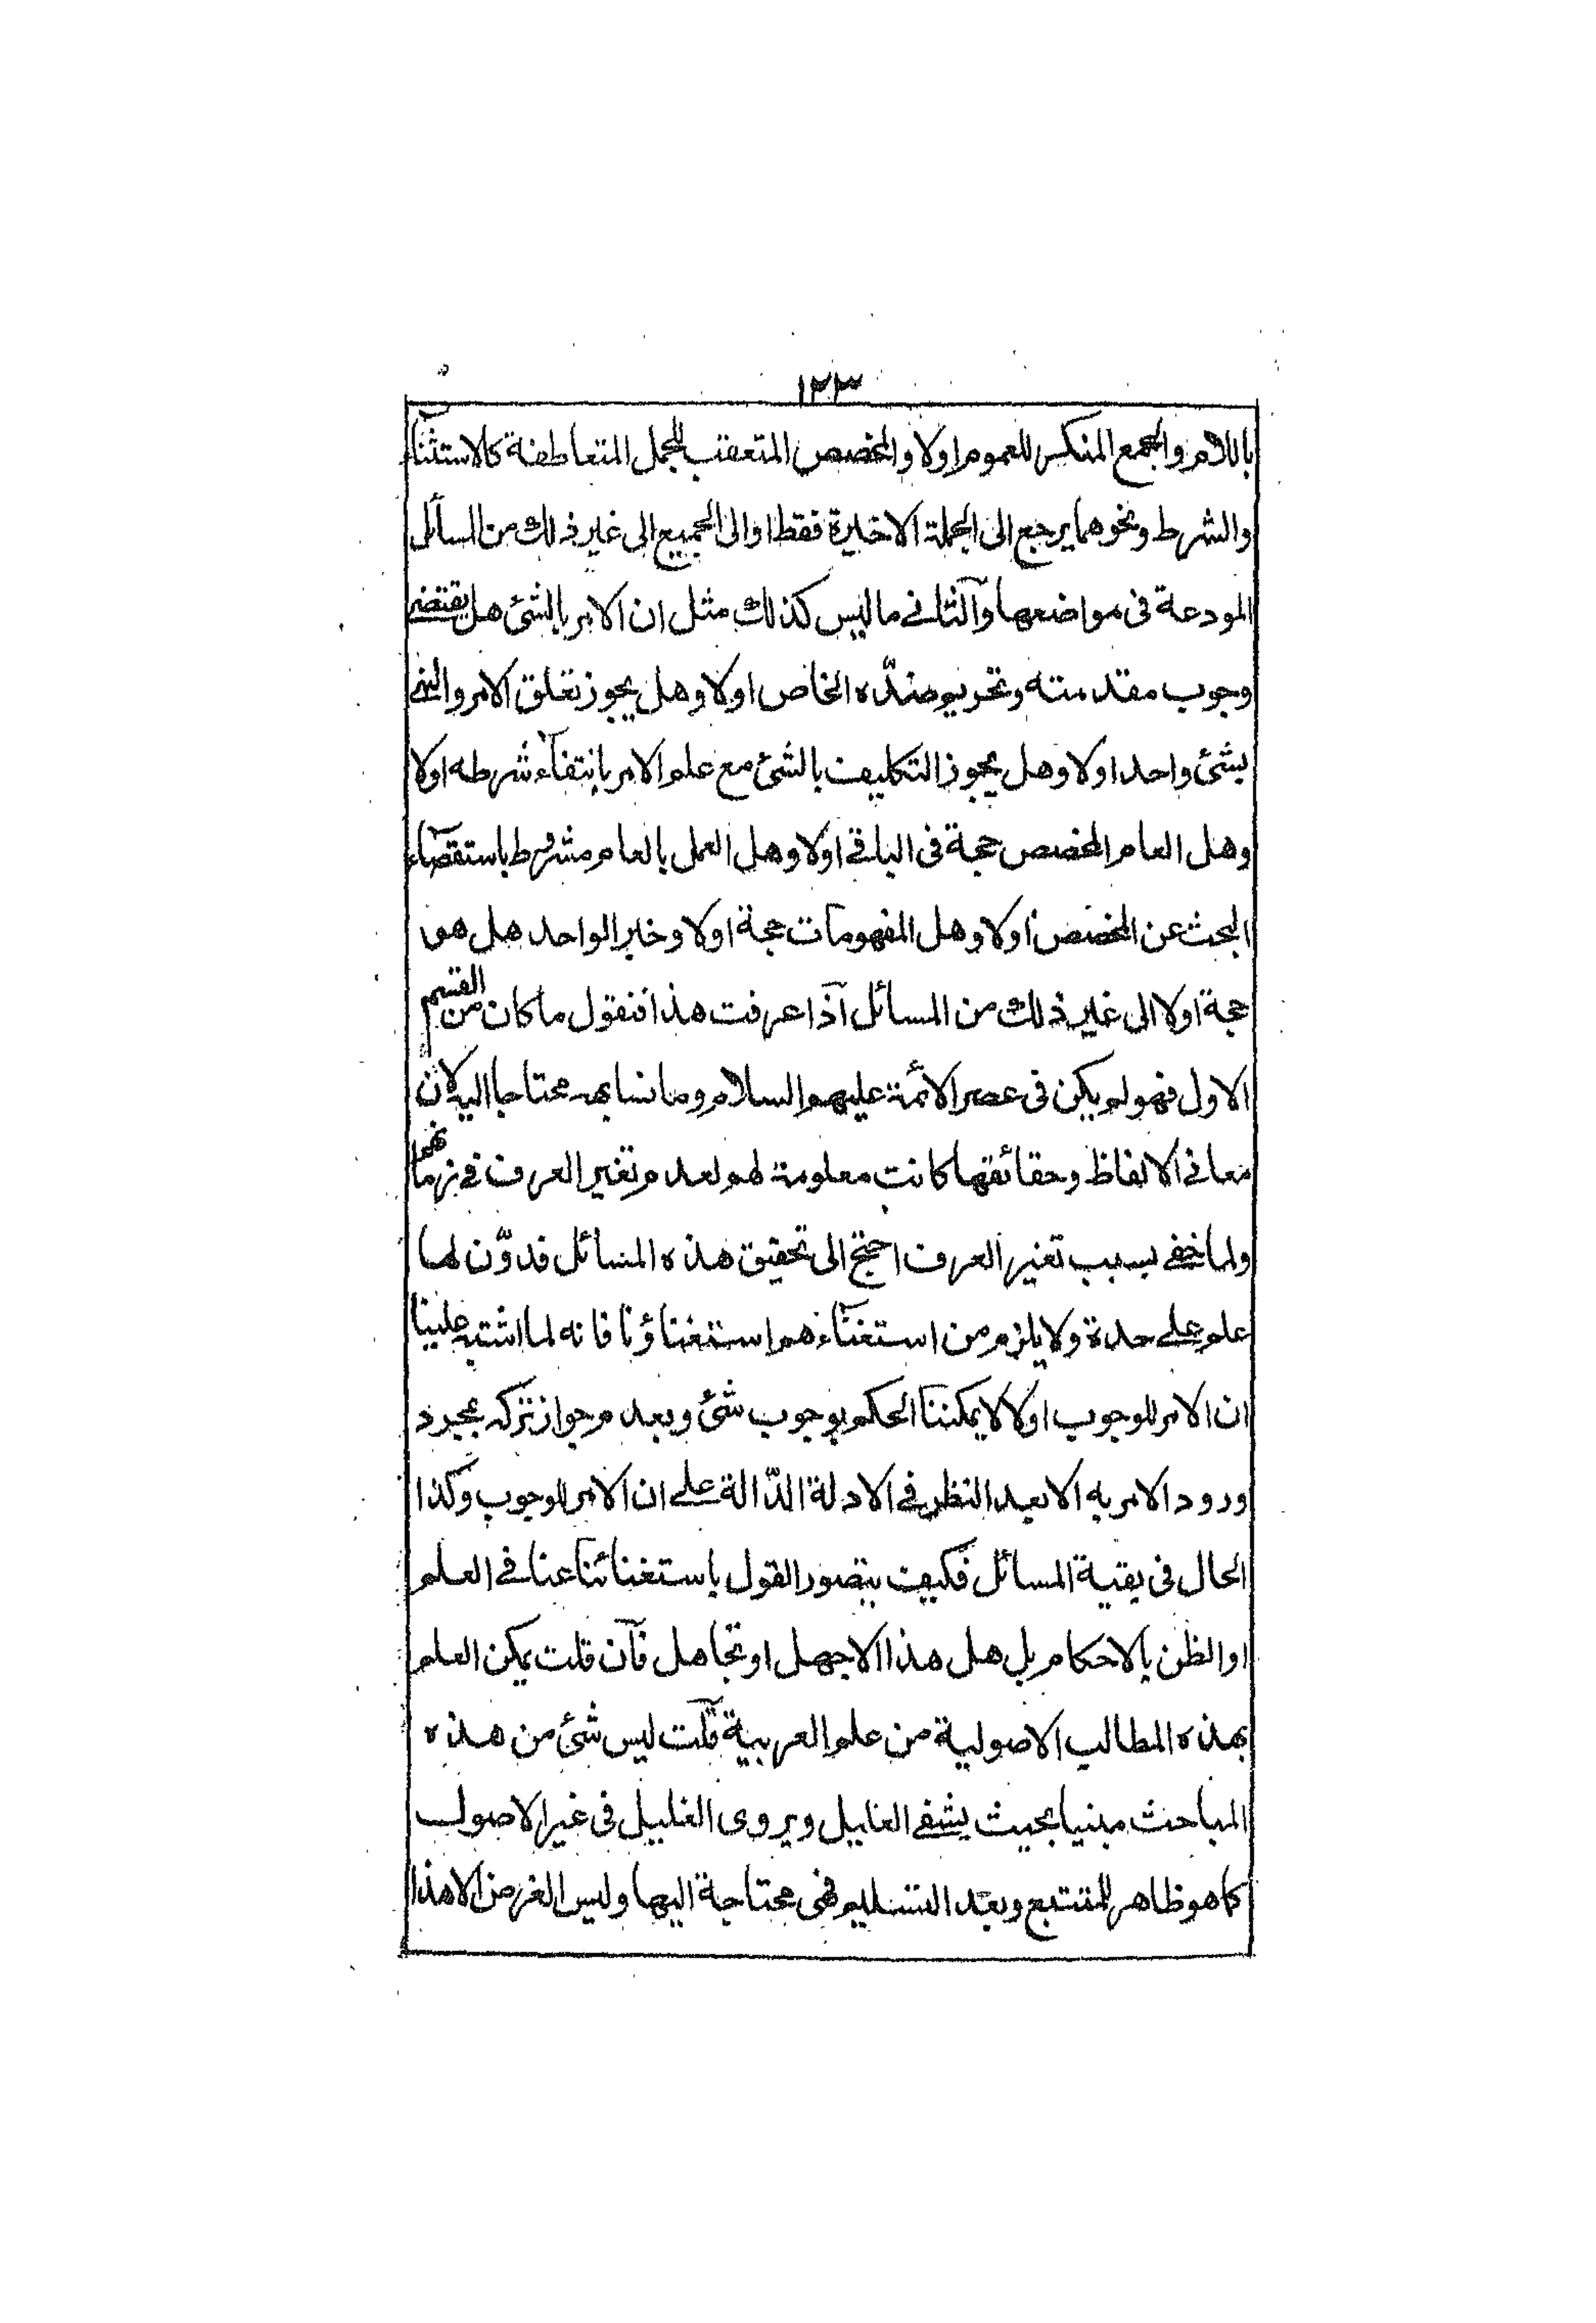 ١٢٣
باللام والجمع المنكر للعموم اولا والمخصص المتعقب للجمل المتعاطفة كالاستثناء
والشرط ونحوهما يرجع الى الجملة الاخيرة فقط او الى الجميع الى غير ذلك من المسائل
المودعة فى مواضعها والثانے ما ليس كذلك مثل ان الامر بالشئ هل يقتضے
وجوب مقدمته وتحريم ضدّه الخاص اولا وهل يجوز تعلق الامر والنهے
بشئ واحد اولا وهل يجوز التكليف بالشئ مع علم الامر بانتفاء شرطه اولا
وهل العام المخصص حجة فى الباقے اولا وهل العمل بالعام مشروط باستقصاء
البحث عن المخصص اولا وهل المفهومات حجة اولا وخبر الواحد هل هو
حجة اولا الى غير ذلك من المسائل اذا عرفت هذا فنقول ما كان من القسم
الاول فهو لم يكن فى عصر الائمة عليهم السلام وما نسا بهم محتاجا اليه لان
معانے الالفاظ وحقائقها كانت معلومة لهم لعدم تغير العرف فے زمانهم
ولما خفے بسبب تغير العرف احتيج الى تحقيق هذه المسائل فدوّن لها
علم علے حدة ولا يلزم من استغناءهم استغناؤنا فانه لما اشتبه علينا
ان الامر للوجوب اولا لا يمكننا الحكم بوجوب شئ وبعدم جواز تركه بمجرد
ورود الامر به الا بعد النظر فے الادلة الدّالة علے ان الامر للوجوب وكذا
الحال فى بقية المسائل فكيف يتصور القول باستغنائنا عنا فے العلم
او الظن بالاحكام بل هل هذا الا جهل او تجاهل فان قلت يمكن العلم
بهذه المطالب الاصولية من علم العربية قلت ليس شئ من هذه
المباحث مبنيا بحيث يشفے العليل ويروى الغليل فى غير الاصول
كما هو ظاهر للمتتبع وبعد التسليم فهى محتاجة اليها وليس الغرض الا هذا